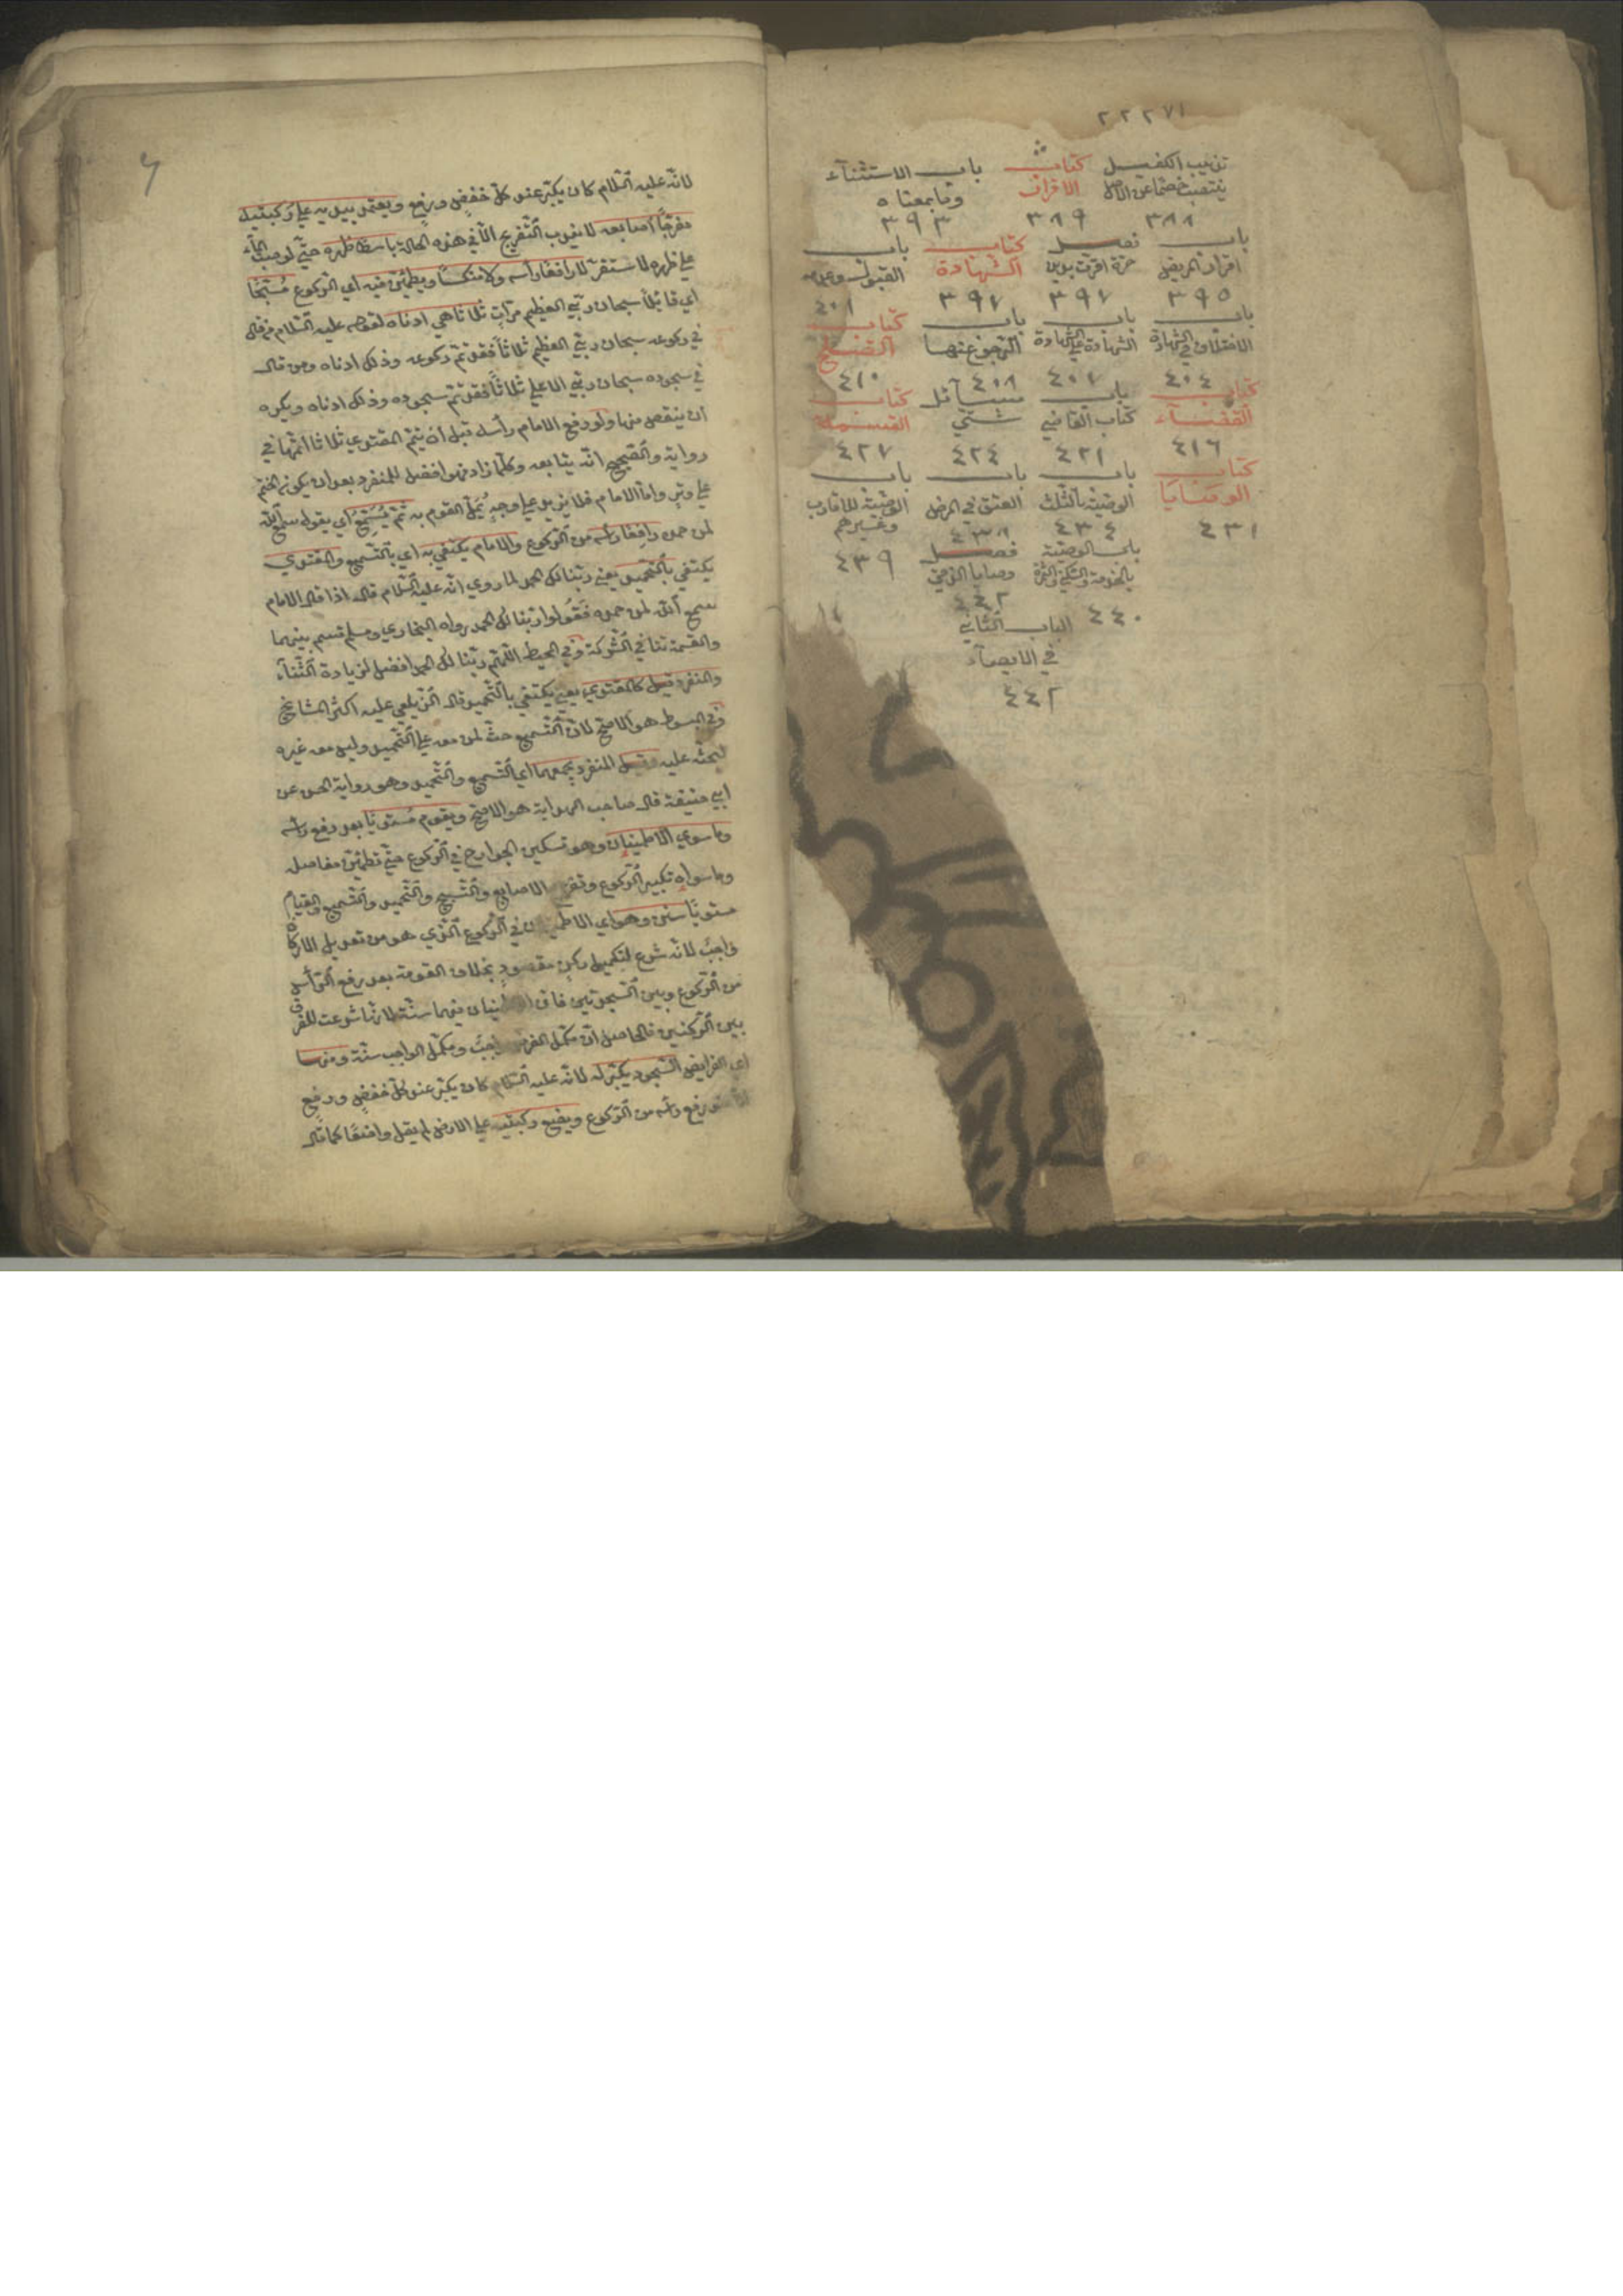 ٢٢٢٧١
تذهيب الكفيل كتاب باب الاستثناء
ينتصب خصما عن الاصل الاقرار وما بمعناه
٣٨٨ ٣٨٩ ٣٩٣
باب فصل كتاب باب
اقرار المريض حرة اقرت بدين الشهادة القبول وعدمه
٣٩٥ ٣٩٧ ٣٩٧ ٤٠١
باب باب باب كتاب
الاختلاف في الشهادة الشهادة علي الشهادة الرجوع عنها الصلح
٤٠٤ ٤٠٧ ٤٠٨ ٤١٠
كتاب باب مسائل كتاب
القضاء كتاب القاضي شتي القسمة
٤١٦ ٤٢١ ٤٢٤ ٤٢٧
كتاب باب باب باب
الوصايا الوصية بالثلث العتق في المرض الوصية للاقارب وغيرهم
٤٣١ ٤٣٤ ٤٣٨ ٤٣٩
باب الوصية فصل
بالخدمة والسكني والثمرة وصايا الذمي
٤٤٠ ٤٤٢
الباب الثاني
في الايصاء
٤٤٢
لانه عليه السلام كان يكبر عند كل خفض ورفع ويعتمد بيديه علي ركبتيه
مفرجا اصابعه لا يندب التفريج الا في هذه الحالة باسطا ظهره حتي لو صب الماء
علي ظهره لاستقر لا رافعا رأسه ولا منكسا ويطمئن فيه اي الركوع مسبحا
اي قائلا سبحان ربي العظيم مرات ثلاثا هي ادناه لقوله عليه السلام من قال
في ركوعه سبحان ربي العظيم ثلاثا فقد تم ركوعه وذلك ادناه ومن قال
في سجوده سبحان ربي الاعلي ثلاثا فقد تم سجوده وذلك ادناه ويكره
ان ينقص منها ولو رفع الامام رأسه قبل ان يتم المقتدي ثلاثا اتمها في
رواية والصحيح انه يتابعه وكلما زاد فهو افضل للمنفرد بعد ان يكون الختم
علي وتر واما الامام فلا يزيد علي وجه يمل القوم به ثم يسمع اي يقول سمع الله
لمن حمده رافعا رأسه من الركوع والامام يكتفي به اي بالتسميع والمقتدي
يكتفي بالتحميد يعني ربنا لك الحمد لما روي انه عليه السلام قال اذا قال الامام
سمع الله لمن حمده فقولوا ربنا لك الحمد رواه البخاري ومسلم قسم بينهما
والقسمة تنافي الشركة وفي المحيط اللهم ربنا لك الحمد افضل لزيادة الثناء
والمنفرد قيل كالمقتدي يعني يكتفي بالتحميد قال الزيلعي عليه اكثر المشايخ
وفي المبسوط هو الاصح لان التسميع حث لمن معه علي التحميد وليس معه غيره
ليحثه عليه وقيل المنفرد يجمعهما اي التسميع والتحميد وهو رواية الحسن عن
ابي حنيفة قال صاحب الهداية هو الاصح ويقوم مستويا بعد رفع رأسه
وما سوي الاطمينان وهو تسكين الجوارح في الركوع حتي تطمئن مفاصله
وما سواه تكبير الركوع وتفريج الاصابع والتسبيح والتحميد والتسميع والقيام
مستويا سنن وهو اي الاطمينان في الركوع الذي هو من تعديل الاركان
واجب لانه شرع لتكميل ركن مقصود بخلاف القومة بعد رفع الرأس
من الركوع وبين السجدتين فان الاطمينان فيهما سنة لانها شرعت للفرق
بين الركنين فالحاصل ان مكمل الفرض واجب ومكمل الواجب سنة ومنها
اي الفرايض السجود يكبر له لانه عليه السلام كان يكبر عند كل خفض ورفع
رفع رأسه من الركوع ويضع ركبتيه علي الارض لم يقل واضعا كما قال